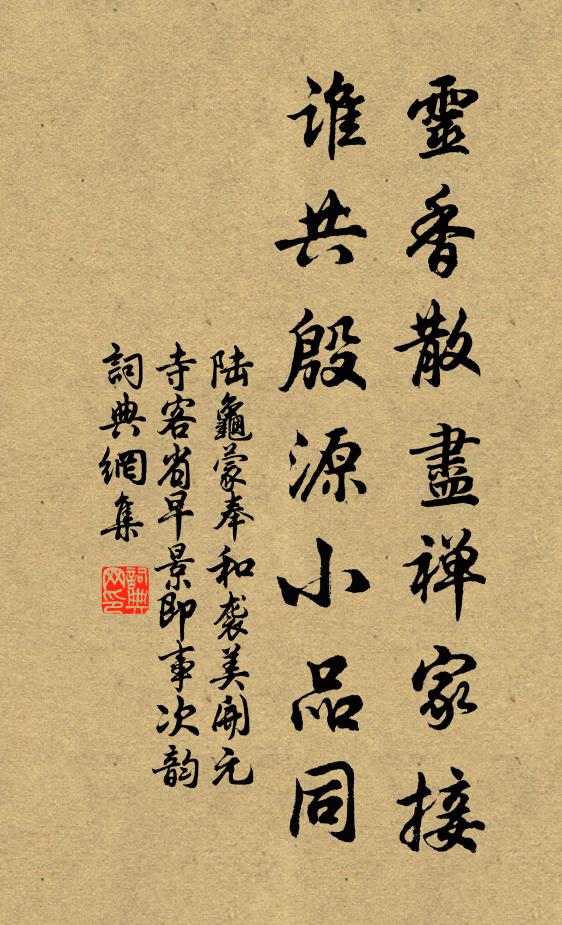 靈香散盡禅家接
誰共殷源小品同
陆龜蒙奉和袭美開元
寺客省早景即事次韵
詞典網集
詞典网印